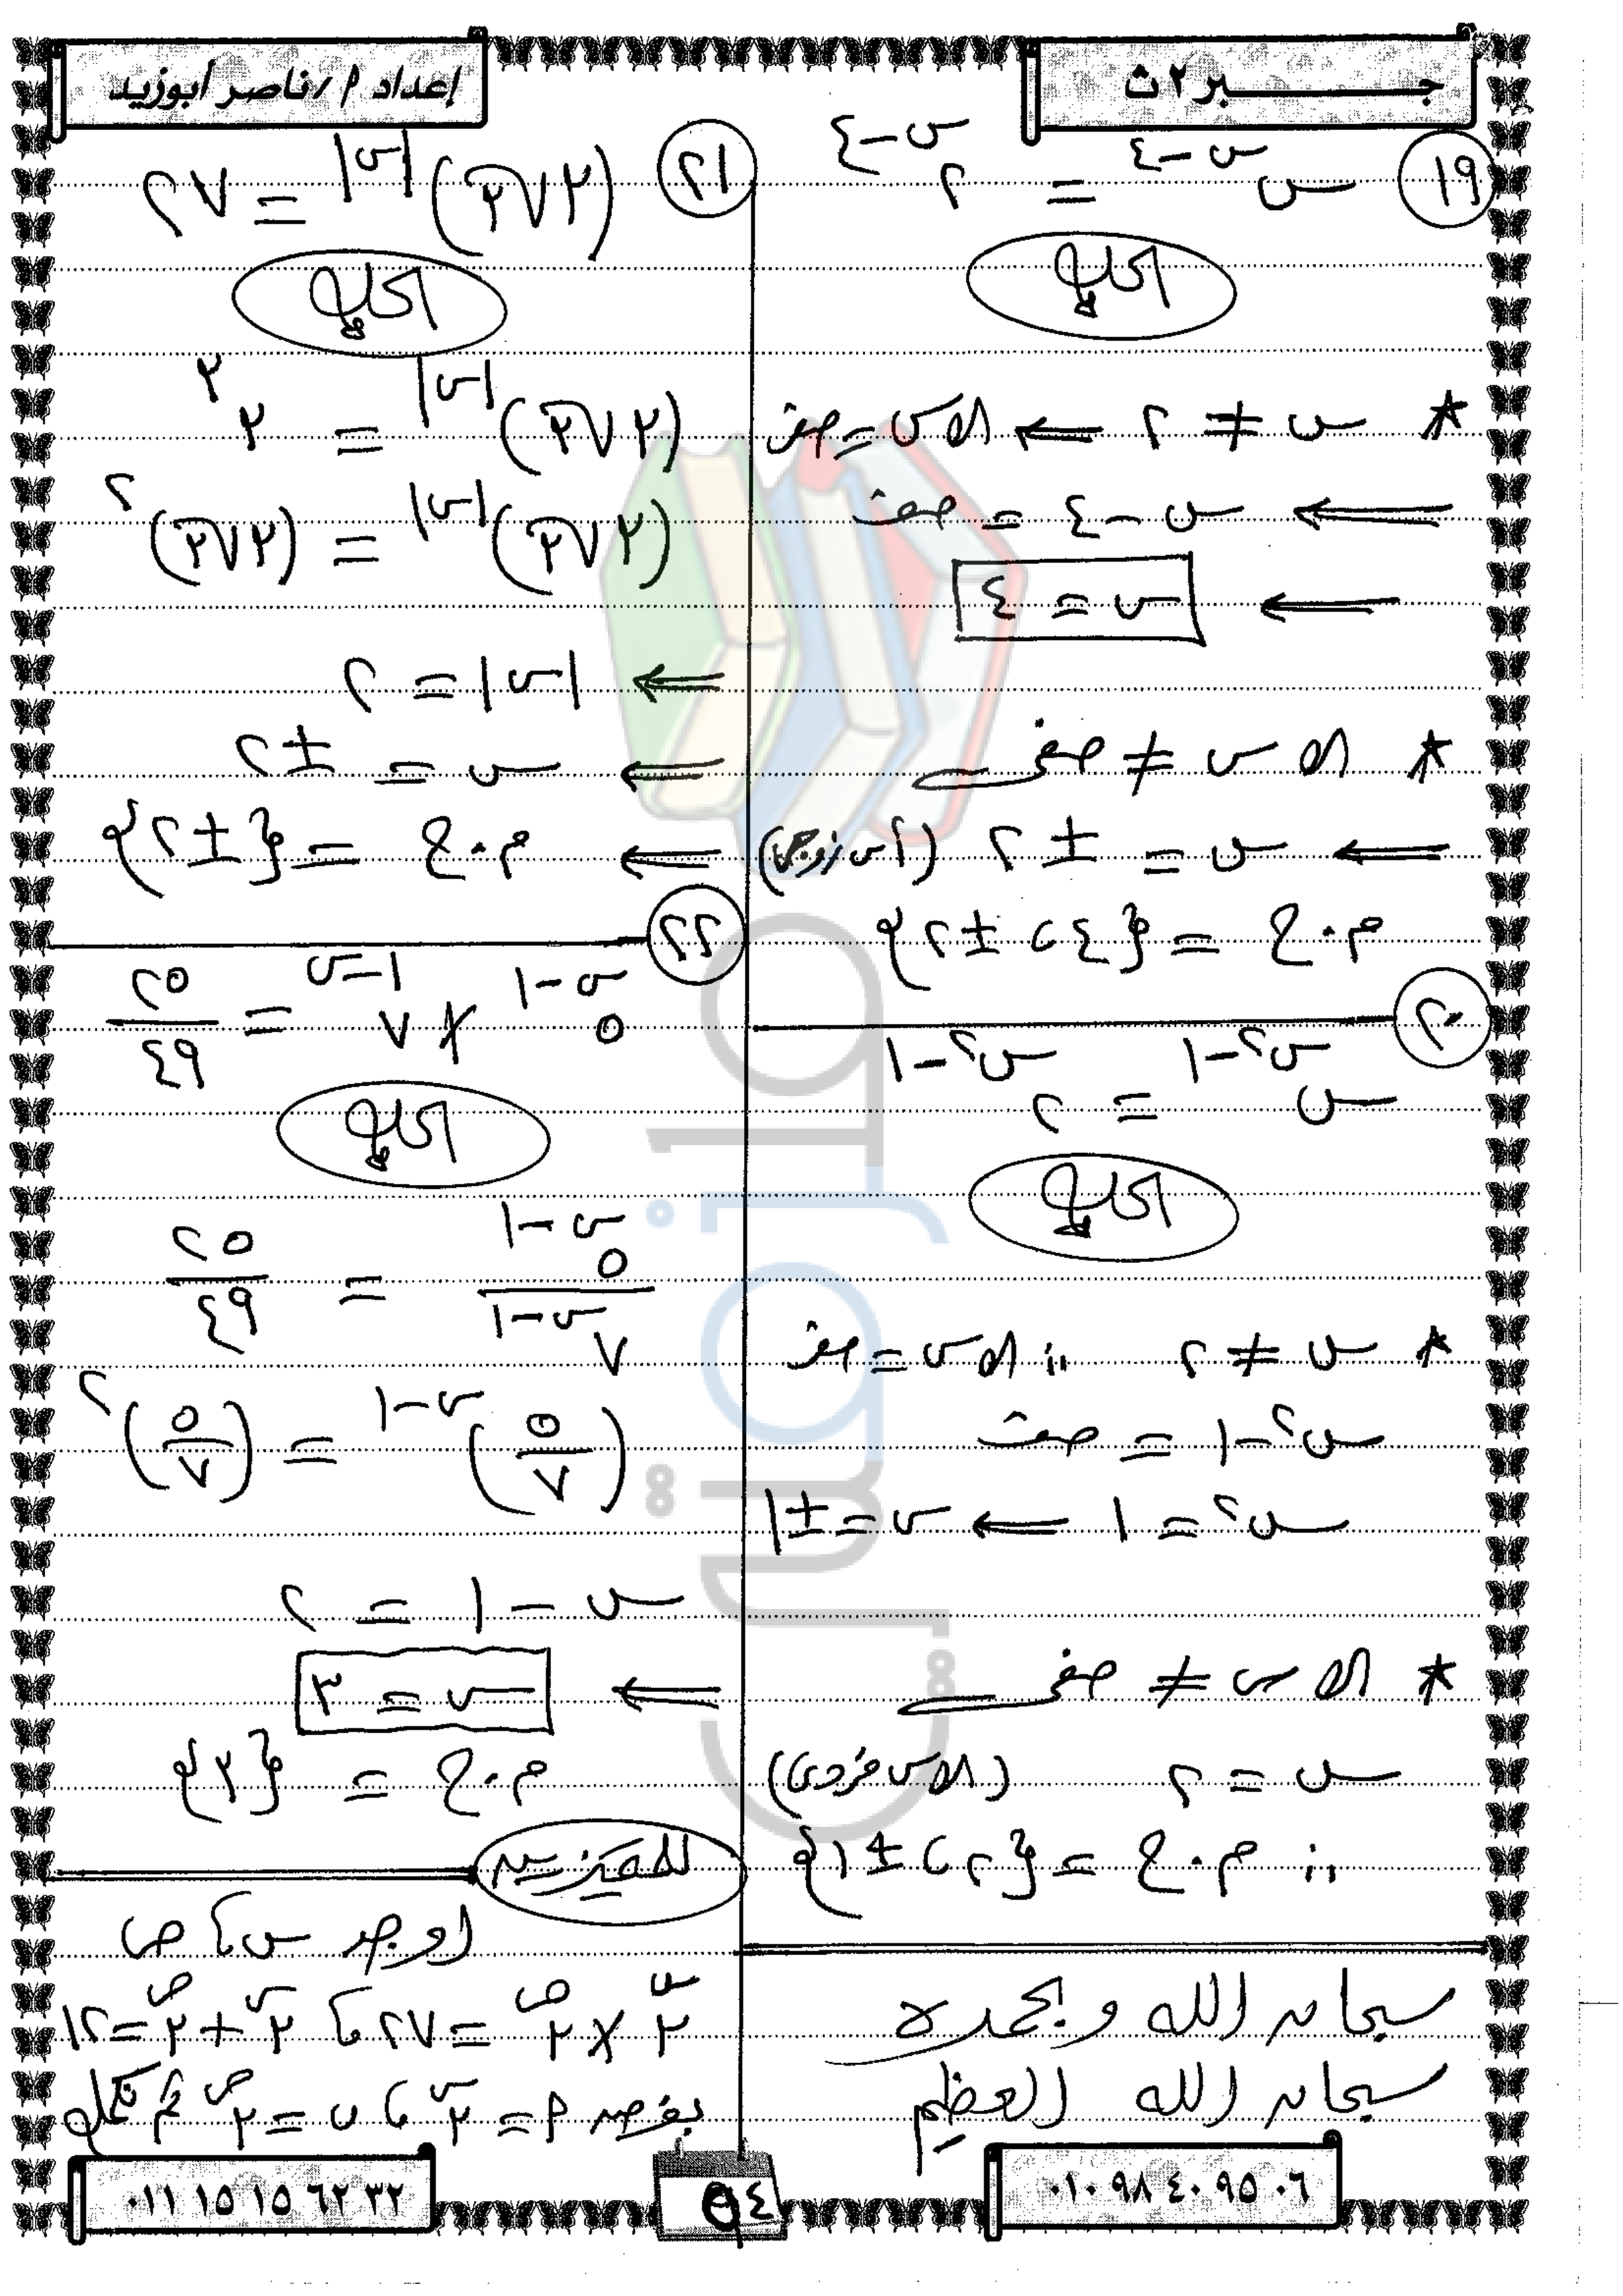 جـــبر ٢ ث
إعداد م/ ناصر أبوزيد
١٩ س^(س-٤) = ٢^(س-٤)
الحل
* س ≠ ٢ ⇐ الأس = صفر
⇐ س - ٤ = صفر
⇐ س = ٤
* الأس ≠ صفر
⇐ س = ± ٢ (أس زوجى)
م.ح = {٤ ، ± ٢}
٢٠
س^(س٢-١) = ٢^(س٢-١)
الحل
* س ≠ ٢ ∴ الأس = صفر
س٢ - ١ = صفر
س٢ = ١ ⇐ س = ± ١
* الأس ≠ صفر
س = ٢ (الأس فردى)
∴ م.ح = {٢ ، ± ١}
سبحان الله وبحمده
سبحان الله العظيم
٢١ (٣√٣)^|س| = ٢٧
الحل
(٣√٣)^|س| = ٣^٣
(٣√٣)^|س| = (٣√٣)^٢
⇐ |س| = ٢
⇐ س = ± ٢
⇐ م.ح = {± ٢}
٢٢
٥^(س-١) × ٧^(١-س) = ٢٥/٤٩
الحل
٥^(س-١) / ٧^(س-١) = ٢٥/٤٩
(٥/٧)^(س-١) = (٥/٧)^٢
س - ١ = ٢
⇐ س = ٣
م.ح = {٣}
للمميزين
أوجد س ، ص
٣^س × ٣^ص = ٢٧ ، ٣^س + ٣^ص = ١٢
بفرض م = ٣^س ، ن = ٣^ص ثم نكمل
٠١٠ ٩٨ ٤٠ ٩٥ ٠٦
٥٤
٠١١ ١٥ ١٥ ٦٢ ٣٢